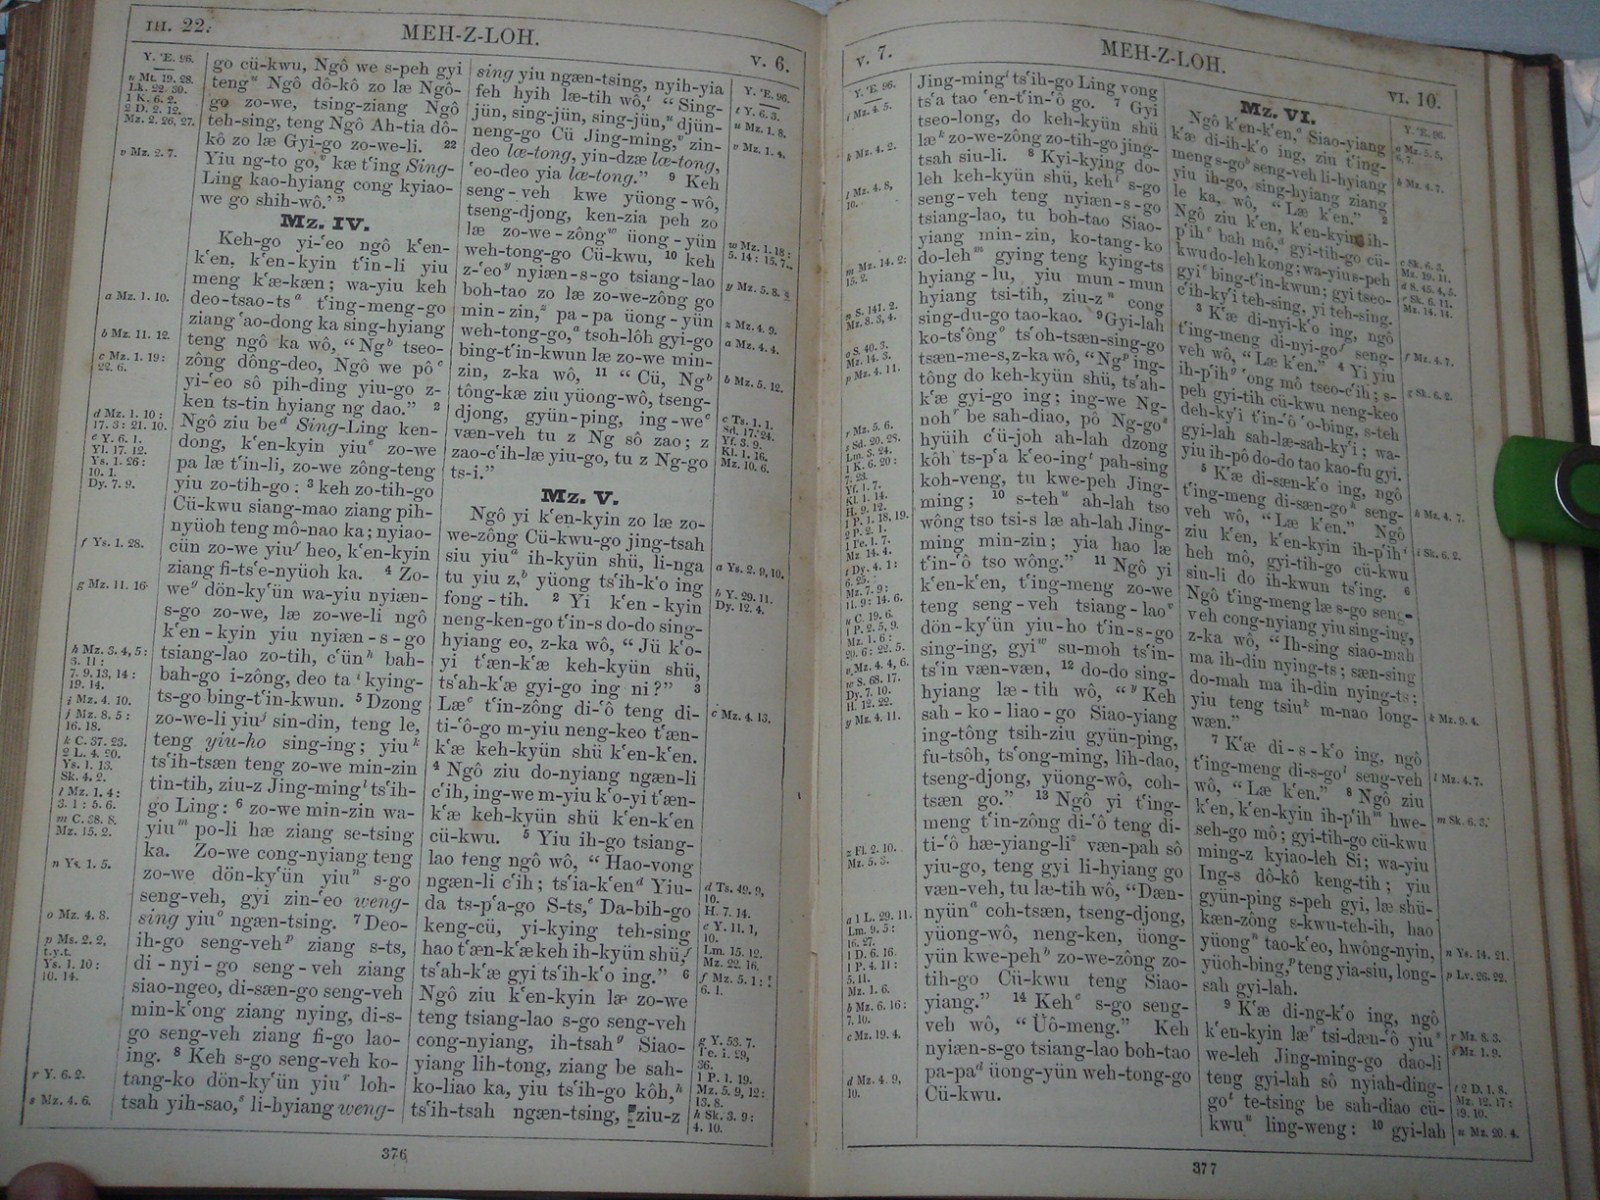 IH. 22.
MEH-Z-LOH.
V. 6.
Y. 'E. 96.
u Mt. 19. 28.
Lk. 22. 30.
1 K. 6. 2.
2 D. 2. 12.
Mz. 2. 26, 27.
v Mz. 2. 7.
a Mz. 1. 10.
b Mz. 11. 12.
c Mz. 1. 19:
22. 6.
d Mz. 1. 10:
17. 3: 21. 10.
e Y. 6. 1.
Yl. 17. 12.
Ys. 1. 26:
10. 1.
Dy. 7. 9.
f Ys. 1. 28.
g Mz. 11. 16.
h Mz. 3. 4, 5:
5. 11:
7. 9. 13, 14:
19. 14.
i Mz. 4. 10.
j Mz. 8. 5:
16. 18.
k C. 37. 23.
2 L. 4. 20.
Ys. 1. 13.
Sk. 4. 2.
l Mz. 1. 4:
3. 1: 5. 6.
m C. 38. 8.
Mz. 15. 2.
n Ys. 1. 5.
o Mz. 4. 8.
p Ms. 2. 2,
t.y.t.
Ys. 1. 10:
10. 14.
r Y. 6. 2.
s Mz. 4. 6.
go cü-kwu, Ngô we s-peh gyi
teng Ngô dô-kô zo læ Ngô-
go zo-we, tsing-ziang Ngô
teh-sing, teng Ngô Ah-tia dô-
kô zo læ Gyi-go zo-we-li. 22
Yiu ng-to go, kæ t'ing Sing-
Ling kao-hyiang cong kyiao-
we go shih-wô.' ”
Mz. IV.
Keh-go yi-'eo ngô k'en-
k'en, k'en-kyin t'in-li yiu
meng k'æ-kæn; wa-yiu keh
deo-tsao-ts a t'ing-meng-go
ziang 'ao-dong ka sing-hyiang
teng ngô ka wô, “ Ng b tseo-
zông dông-deo, Ngô we pô c
yi-'eo sô pih-ding yiu-go z-
ken ts-tin hyiang ng dao.” 2
Ngô ziu be d Sing-Ling ken-
dong, k'en-kyin yiu e zo-we
pa læ t'in-li, zo-we zông-teng
yiu zo-tih-go: 3 keh zo-tih-go
Cü-kwu siang-mao ziang pih-
nyüoh teng mô-nao ka; nyiao-
cün zo-we yiu f heo, k'en-kyin
ziang fi-ts'e-nyüoh ka. 4 Zo-
we g dön-ky'ün wa-yiu nyiæn-
s-go zo-we, læ zo-we-li ngô
k'en-kyin yiu nyiæn-s-go
tsiang-lao zo-tih, c'ün h bah-
bah-go i-zông, deo ta i kying-
ts-go bing-t'in-kwun. 5 Dzong
zo-we-li yiu j sin-din, teng le,
teng yiu-ho sing-ing; yiu k
ts'ih-tsæn teng zo-we min-zin
tin-tih, ziu-z Jing-ming l ts'ih-
go Ling: 6 zo-we min-zin wa-
yiu m po-li hæ ziang se-tsing
ka. Zo-we cong-nyiang teng
zo-we dön-ky'ün yiu n s-go
seng-veh, gyi zin-'eo weng-
sing yiu o ngæn-tsing. 7 Deo-
ih-go seng-veh p ziang s-ts,
di-nyi-go seng-veh ziang
siao-ngeo, di-sæn-go seng-veh
min-k'ong ziang nying, di-s-
go seng-veh ziang fi-go lao-
ing. 8 Keh s-go seng-veh ko-
tang-ko dön-ky'ün yiu r loh-
tsah yih-sao, s li-hyiang weng-
sing yiu ngæn-tsing, nyih-yia
feh hyih læ-tih wô, t “ Sing-
jün, sing-jün, sing-jün, u djün-
neng-go Cü Jing-ming, v zin-
deo læ-tong, yin-dzæ læ-tong,
'eo-deo yia læ-tong.” 9 Keh
seng-veh kwe yüong-wô,
tseng-djong, ken-zia peh zo
læ zo-we-zông w üong-yün
weh-tong-go Cü-kwu, 10 keh
z-'eo y nyiæn-s-go tsiang-lao
boh-tao zo læ zo-we-zông go
min-zin, z pa-pa üong-yün
weh-tong-go, a tsoh-lôh gyi-go
bing-t'in-kwun læ zo-we min-
zin, z-ka wô, 11 “ Cü, Ng b
tông-kæ ziu yüong-wô, tseng-
djong, gyün-ping, ing-we c
væn-veh tu z Ng sô zao; z
zao-c'ih-læ yiu-go, tu z Ng-go
ts-i.”
Mz. V.
Ngô yi k'en-kyin zo læ zo-
we-zông Cü-kwu-go jing-tsah
siu yiu a ih-kyün shü, li-nga
tu yiu z, b yüong ts'ih-k'o ing
fong-tih. 2 Yi k'en-kyin
neng-ken-go t'in-s do-do sing-
hyiang eo, z-ka wô, “ Jü k'o-
yi t'æn-k'æ keh-kyün shü,
ts'ah-k'æ gyi-go ing ni?” 3
Læ c t'in-zông di-'ô teng di-
ti-'ô-go m-yiu neng-keo t'æn-
k'æ keh-kyün shü k'en-k'en.
4 Ngô ziu do-nyiang ngæn-li
c'ih, ing-we m-yiu k'o-yi t'æn-
k'æ keh-kyün shü k'en-k'en
cü-kwu. 5 Yiu ih-go tsiang-
lao teng ngô wô, “ Hao-vong
ngæn-li c'ih; ts'ia-k'en d Yiu-
da ts-p'a-go S-ts, e Da-bih-go
keng-cü, yi-kying teh-sing
hao t'æn-k'æ keh ih-kyün shü, f
ts'ah-k'æ gyi ts'ih-k'o ing.” 6
Ngô ziu k'en-kyin læ zo-we
teng tsiang-lao s-go seng-veh
cong-nyiang, ih-tsah g Siao-
yiang lih-tong, ziang be sah-
ko-liao ka, yiu ts'ih-go kôh, h
ts'ih-tsah ngæn-tsing, ziu-z
Y. 'E. 96.
t Y. 6. 3.
u Mz. 1. 8.
v Mz. 1. 4.
w Mz. 1. 18:
5. 14: 15. 7.
y Mz. 5. 8.
z Mz. 4. 9.
a Mz. 4. 4.
b Mz. 5. 12.
c Ts. 1. 1.
Sd. 17. 24.
Yf. 3. 9.
Kl. 1. 16.
Mz. 10. 6.
a Ys. 2. 9, 10.
b Y. 29. 11.
Dy. 12. 4.
c Mz. 4. 13.
d Ts. 49. 9,
10.
H. 7. 14.
e Y. 11. 1,
10.
Lm. 15. 12.
Mz. 22. 16.
f Mz. 5. 1:
6. 1.
g Y. 53. 7.
Yc. 1. 29,
36.
1 P. 1. 19.
Mz. 5. 9, 12:
13. 8.
h Sk. 3. 9:
4. 10.
376
V. 7.
MEH-Z-LOH.
VI. 10.
Y. 'E. 96.
i Mz. 4. 5.
k Mz. 4. 2.
l Mz. 4. 8,
10.
m Mz. 14. 2:
15. 2.
n S. 141. 2.
Mz. 8. 3, 4.
o S. 40. 3.
Mz. 14. 3.
p Mz. 4. 11.
r Mz. 5. 6.
s Sd. 20. 28.
Lm. 3. 24.
1 K. 6. 20:
7. 23.
Yf. 1. 7.
Kl. 1. 14.
H. 9. 12.
1 P. 1. 18, 19.
2 P. 2. 1.
1 Yc. 1. 7.
Mz. 14. 4.
t Dy. 4. 1:
6. 25.
Mz. 7. 9:
11. 9: 14. 6.
u C. 19. 6.
1 P. 2. 5, 9.
Mz. 1. 6:
20. 6: 22. 5.
v Mz. 4. 4, 6.
w S. 68. 17.
Dy. 7. 10.
H. 12. 22.
y Mz. 4. 11.
z Fl. 2. 10.
Mz. 5. 3.
a 1 L. 29. 11.
Lm. 9. 5:
16. 27.
1 D. 6. 16.
1 P. 4. 11:
5. 11.
Mz. 1. 6.
b Mz. 6. 16:
7. 10.
c Mz. 19. 4.
d Mz. 4. 9,
10.
Jing-ming i ts'ih-go Ling vong
ts'a tao 'en-t'in-'ô go. 7 Gyi
tseo-long, do keh-kyün shü
læ k zo-we-zông zo-tih-go jing-
tsah siu-li. 8 Kyi-kying do-
leh keh-kyün shü, keh l s-go
seng-veh teng nyiæn-s-go
tsiang-lao, tu boh-tao Siao-
yiang min-zin, ko-tang-ko
do-leh m gying teng kying-ts
hyiang-lu, yiu mun-mun
hyiang tsi-tih, ziu-z n cong
sing-du-go tao-kao. 9 Gyi-lah
ko-ts'ông o ts'oh-tsæn-sing-go
tsæn-me-s, z-ka wô, “ Ng p ing-
tông do keh-kyün shü, ts'ah-
k'æ gyi-go ing; ing-we Ng-
noh r be sah-diao, pô Ng-go s
hyüih c'ü-joh ah-lah dzong
kôh ts-p'a k'eo-ing t pah-sing
koh-veng, tu kwe-peh Jing-
ming; 10 s-teh u ah-lah tso
wông tso tsi-s læ ah-lah Jing-
ming min-zin; yia hao læ
t'in-'ô tso wông.” 11 Ngô yi
k'en-k'en, t'ing-meng zo-we
teng seng-veh tsiang-lao v
dön-ky'ün yiu-ho t'in-s-go
sing-ing, gyi w su-moh ts'in-
ts'in væn-væn, 12 do-do sing-
hyiang læ-tih wô, “ y Keh
sah-ko-liao-go Siao-yiang
ing-tông tsih-ziu gyün-ping,
fu-tsôh, ts'ong-ming, lih-dao,
tseng-djong, yüong-wô, coh-
tsæn go.” 13 Ngô yi t'ing-
meng t'in-zông di-'ô teng di-
ti-'ô hæ-yiang-li z væn-pah sô
yiu-go, teng gyi li-hyiang go
væn-veh, tu læ-tih wô, “Dæn-
nyün a coh-tsæn, tseng-djong,
yüong-wô, neng-ken, üong-
yün kwe-peh b zo-we-zông zo-
tih-go Cü-kwu teng Siao-
yiang.” 14 Keh c s-go seng-
veh wô, “ Üô-meng.” Keh
nyiæn-s-go tsiang-lao boh-tao
pa-pa d üong-yün weh-tong-go
Cü-kwu.
Mz. VI.
Ngô k'en-k'en, a Siao-yiang
k'æ di-ih-k'o ing, ziu t'ing-
meng s-go b seng-veh li-hyiang
yiu ih-go, sing-hyiang ziang
le ka, wô, “ Læ k'en.” 2
Ngô ziu k'en, k'en-kyin ih-
p'ih c bah mô, d gyi-tih-go cü-
kwu do-leh kong; wa-yiu s-peh
gyi e bing-t'in-kwun; gyi tseo-
c'ih-ky'i teh-sing, yi teh-sing.
3 K'æ di-nyi-k'o ing, ngô
t'ing-meng di-nyi-go f seng-
veh wô, “ Læ k'en.” 4 Yi yiu
ih-p'ih g 'ong mô tseo-c'ih; s-
peh gyi-tih cü-kwu neng-keo
deh-ky'i t'in-'ô 'o-bing, s-teh
gyi-lah sah-læ-sah-ky'i; wa-
yiu ih-pô do-do tao kao-fu gyi.
5 K'æ di-sæn-k'o ing, ngô
t'ing-meng di-sæn-go h seng-
veh wô, “ Læ k'en.” Ngô
ziu k'en, k'en-kyin ih-p'ih i
heh mô, gyi-tih-go cü-kwu
siu-li do ih-kwun ts'ing. 6
Ngô t'ing-meng læ s-go seng-
veh cong-nyiang yiu sing-ing,
z-ka wô, “ Ih-sing siao-mah
ma ih-din nying-ts; sæn-sing
do-mah ma ih-din nying-ts:
yiu teng tsiu k m-nao long-
wæn.”
7 K'æ di-s-k'o ing, ngô
t'ing-meng di-s-go l seng-veh
wô, “ Læ k'en.” 8 Ngô ziu
k'en, k'en-kyin ih-p'ih m hwe-
seh-go mô; gyi-tih-go cü-kwu
ming-z kyiao-leh Si; wa-yiu
Ing-s dô-kô keng-tih; yiu
gyün-ping s-peh gyi, læ shü-
kæn-zông s-kwu-teh-ih, hao
yüong n tao-k'eo, hwông-nyin,
yüoh-bing, p teng yia-siu, long-
sah gyi-lah.
9 K'æ di-ng-k'o ing, ngô
k'en-kyin læ r tsi-dæn-'ô yiu s
we-leh Jing-ming-go dao-li
teng gyi-lah sô nyiah-ding-
go t te-tsing be sah-diao cü-
kwu u ling-weng: 10 gyi-lah
Y. 'E. 96.
a Mz. 5. 5,
6, 7.
b Mz. 4. 7.
c Sk. 6. 3.
Mz. 19. 11.
d S. 45. 4, 5.
e Sk. 6. 11.
Mz. 14. 14.
f Mz. 4. 7.
g Sk. 6. 2.
h Mz. 4. 7.
i Sk. 6. 2.
k Mz. 9. 4.
l Mz. 4. 7.
m Sk. 6. 3.
n Ys. 14. 21.
p Lv. 26. 22.
r Mz. 8. 3.
s Mz. 1. 9.
t 2 D. 1. 8.
Mz. 12. 17:
19. 10.
u Mz. 20. 4.
377